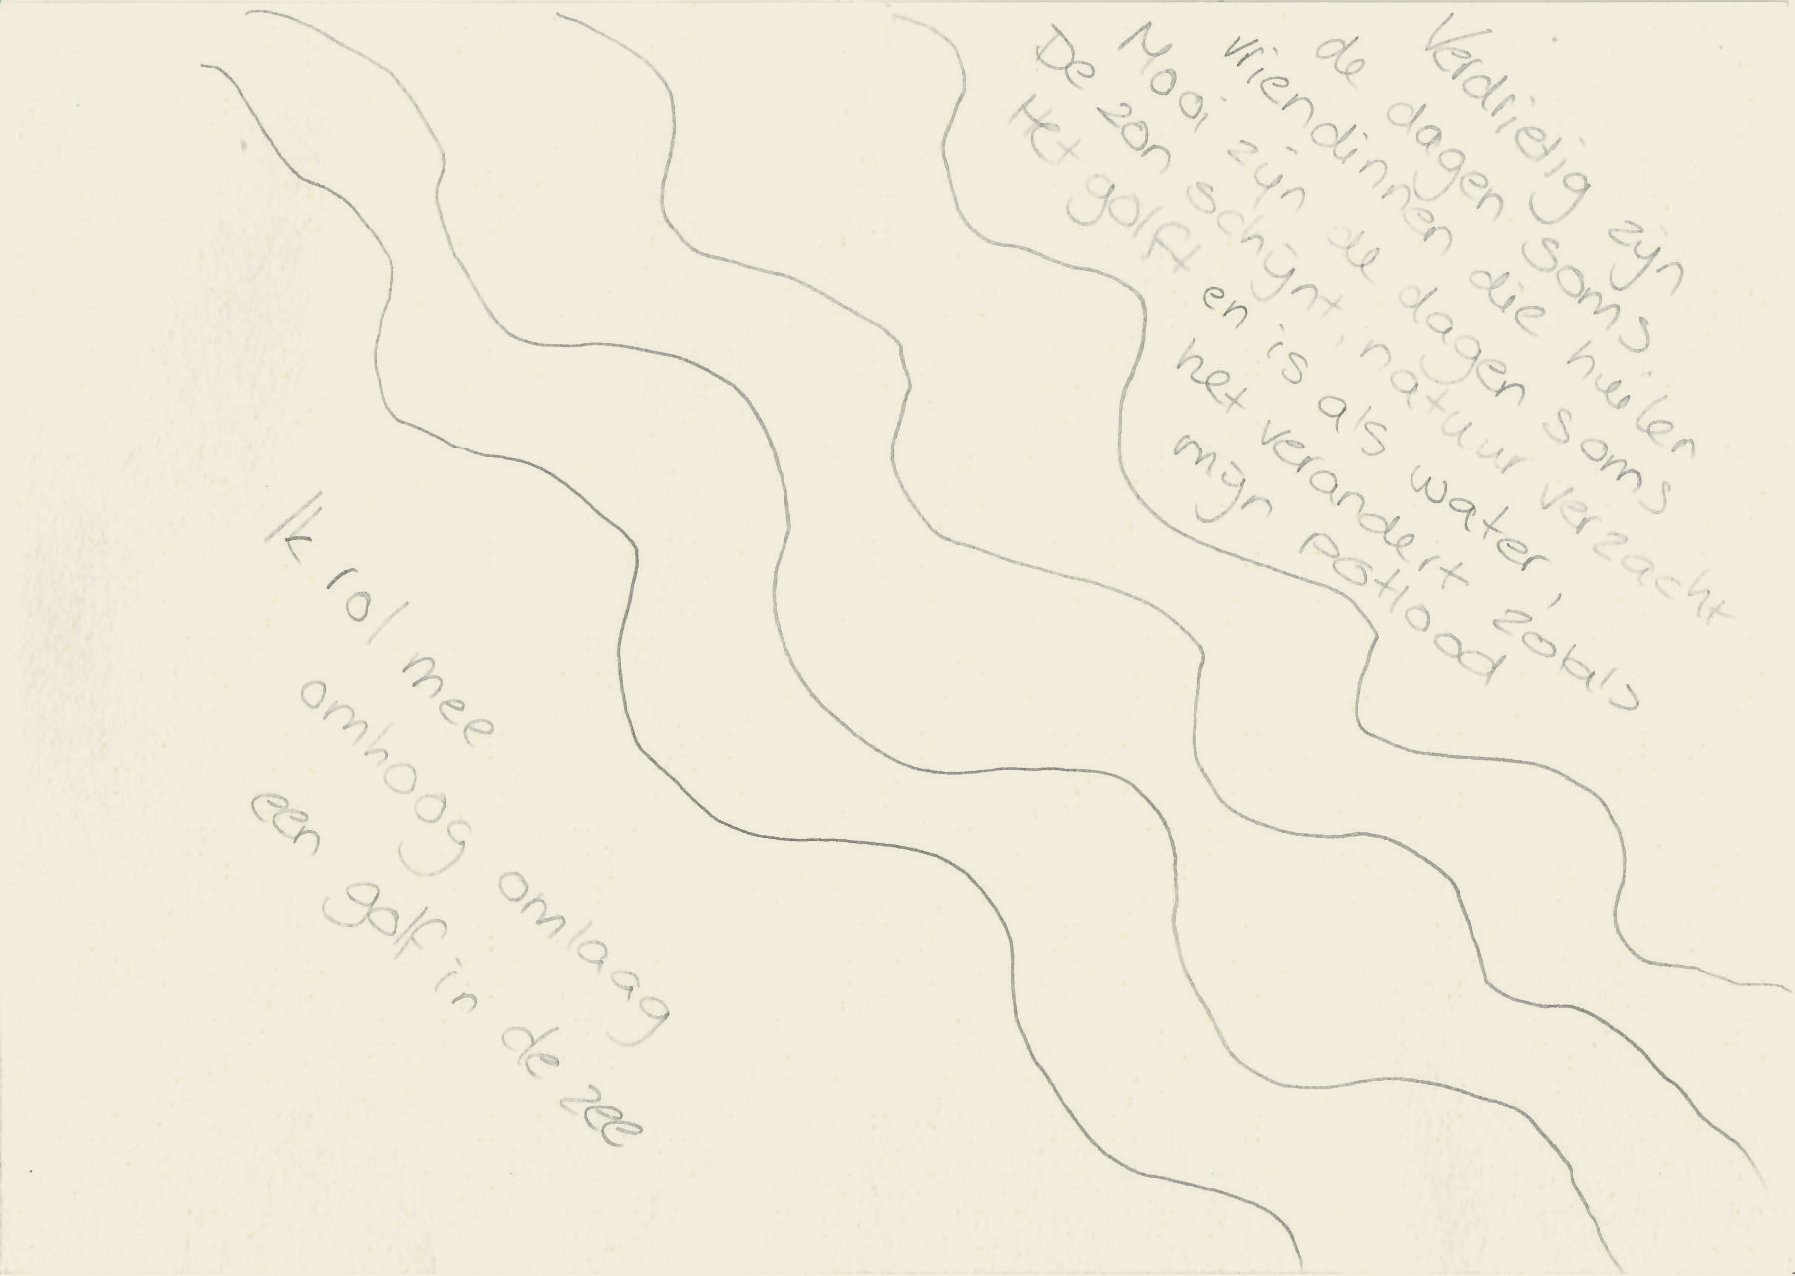 Verdrietig zijn
de dagen soms
vriendinnen die huilen
Mooi zijn de dagen soms
De zon schijnt, natuur verzacht
Het golft en is als water,
het verandert zoals
mijn potlood
Ik rol mee
omhoog omlaag
een golf in de zee